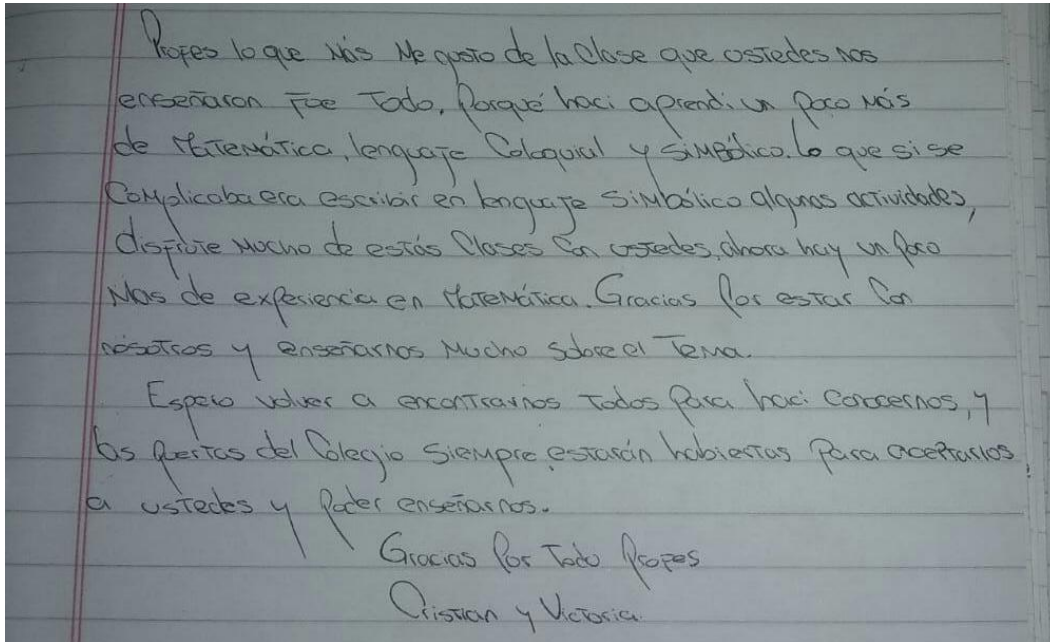 Profes lo que más me gusto de la Clase que ustedes nos
enseñaron fue todo, Porqué haci aprendi un poco más
de Matemática, lenguaje Coloquial y simbólico. Lo que si se
Complicaba era escribir en lenguaje simbólico algunas actividades,
disfrute mucho de estás Clases Con ustedes, ahora hay un poco
mas de experiencia en Matemática. Gracias Por estar Con
nósotros y enseñarnos mucho sobre el tema.
Espero volver a encontrarnos todos Para haci conocernos, y
las Puertas del Colegio siempre estarán habiertas Para aceptarlos
a ustedes y Poder enseñarnos.
Gracias Por todo Profes
Cristian y Victoria.